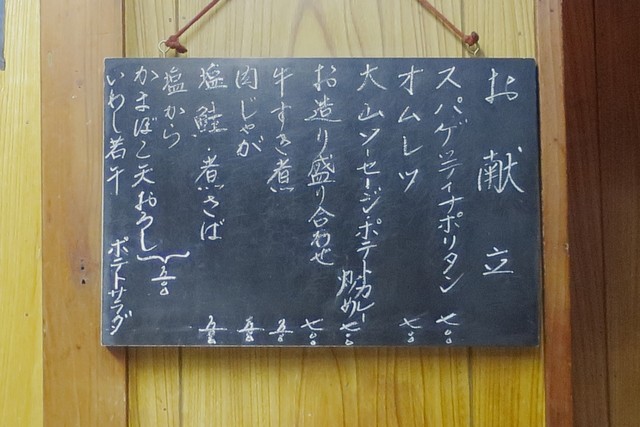 お献立
スパゲッティナポリタン 七〇〇
オムレツ 七〇〇
大山ソーセージ・ポテトカレー炒め 七〇〇
お造り盛り合わせ 七〇〇
牛すき煮 五〇〇
肉じゃが 五〇〇
塩鮭・煮さば 五〇〇
塩から
かまぼこ天おろし
いわし若干 ポテトサラダ